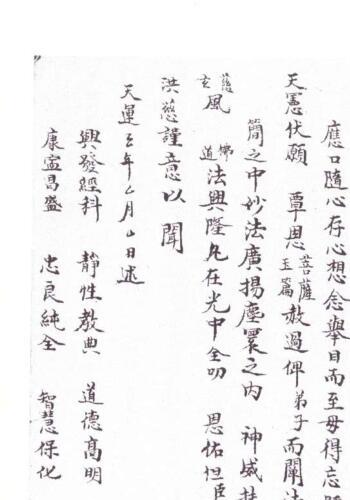 應口隨心存心想念舉目而至毋得忘
天憲伏願 覃恩 菩薩 玉篇 赦過俾弟子而闡
簡之中妙法廣揚塵寰之內 神威
慈 玄 風 佛 道 法興隆凡在光中全叨 恩佑怛臣
洪慈謹意以聞
天運厶年厶月厶日述
興發經科 靜性教典 道德高明
康寍昌盛 忠良純全 智慧保化